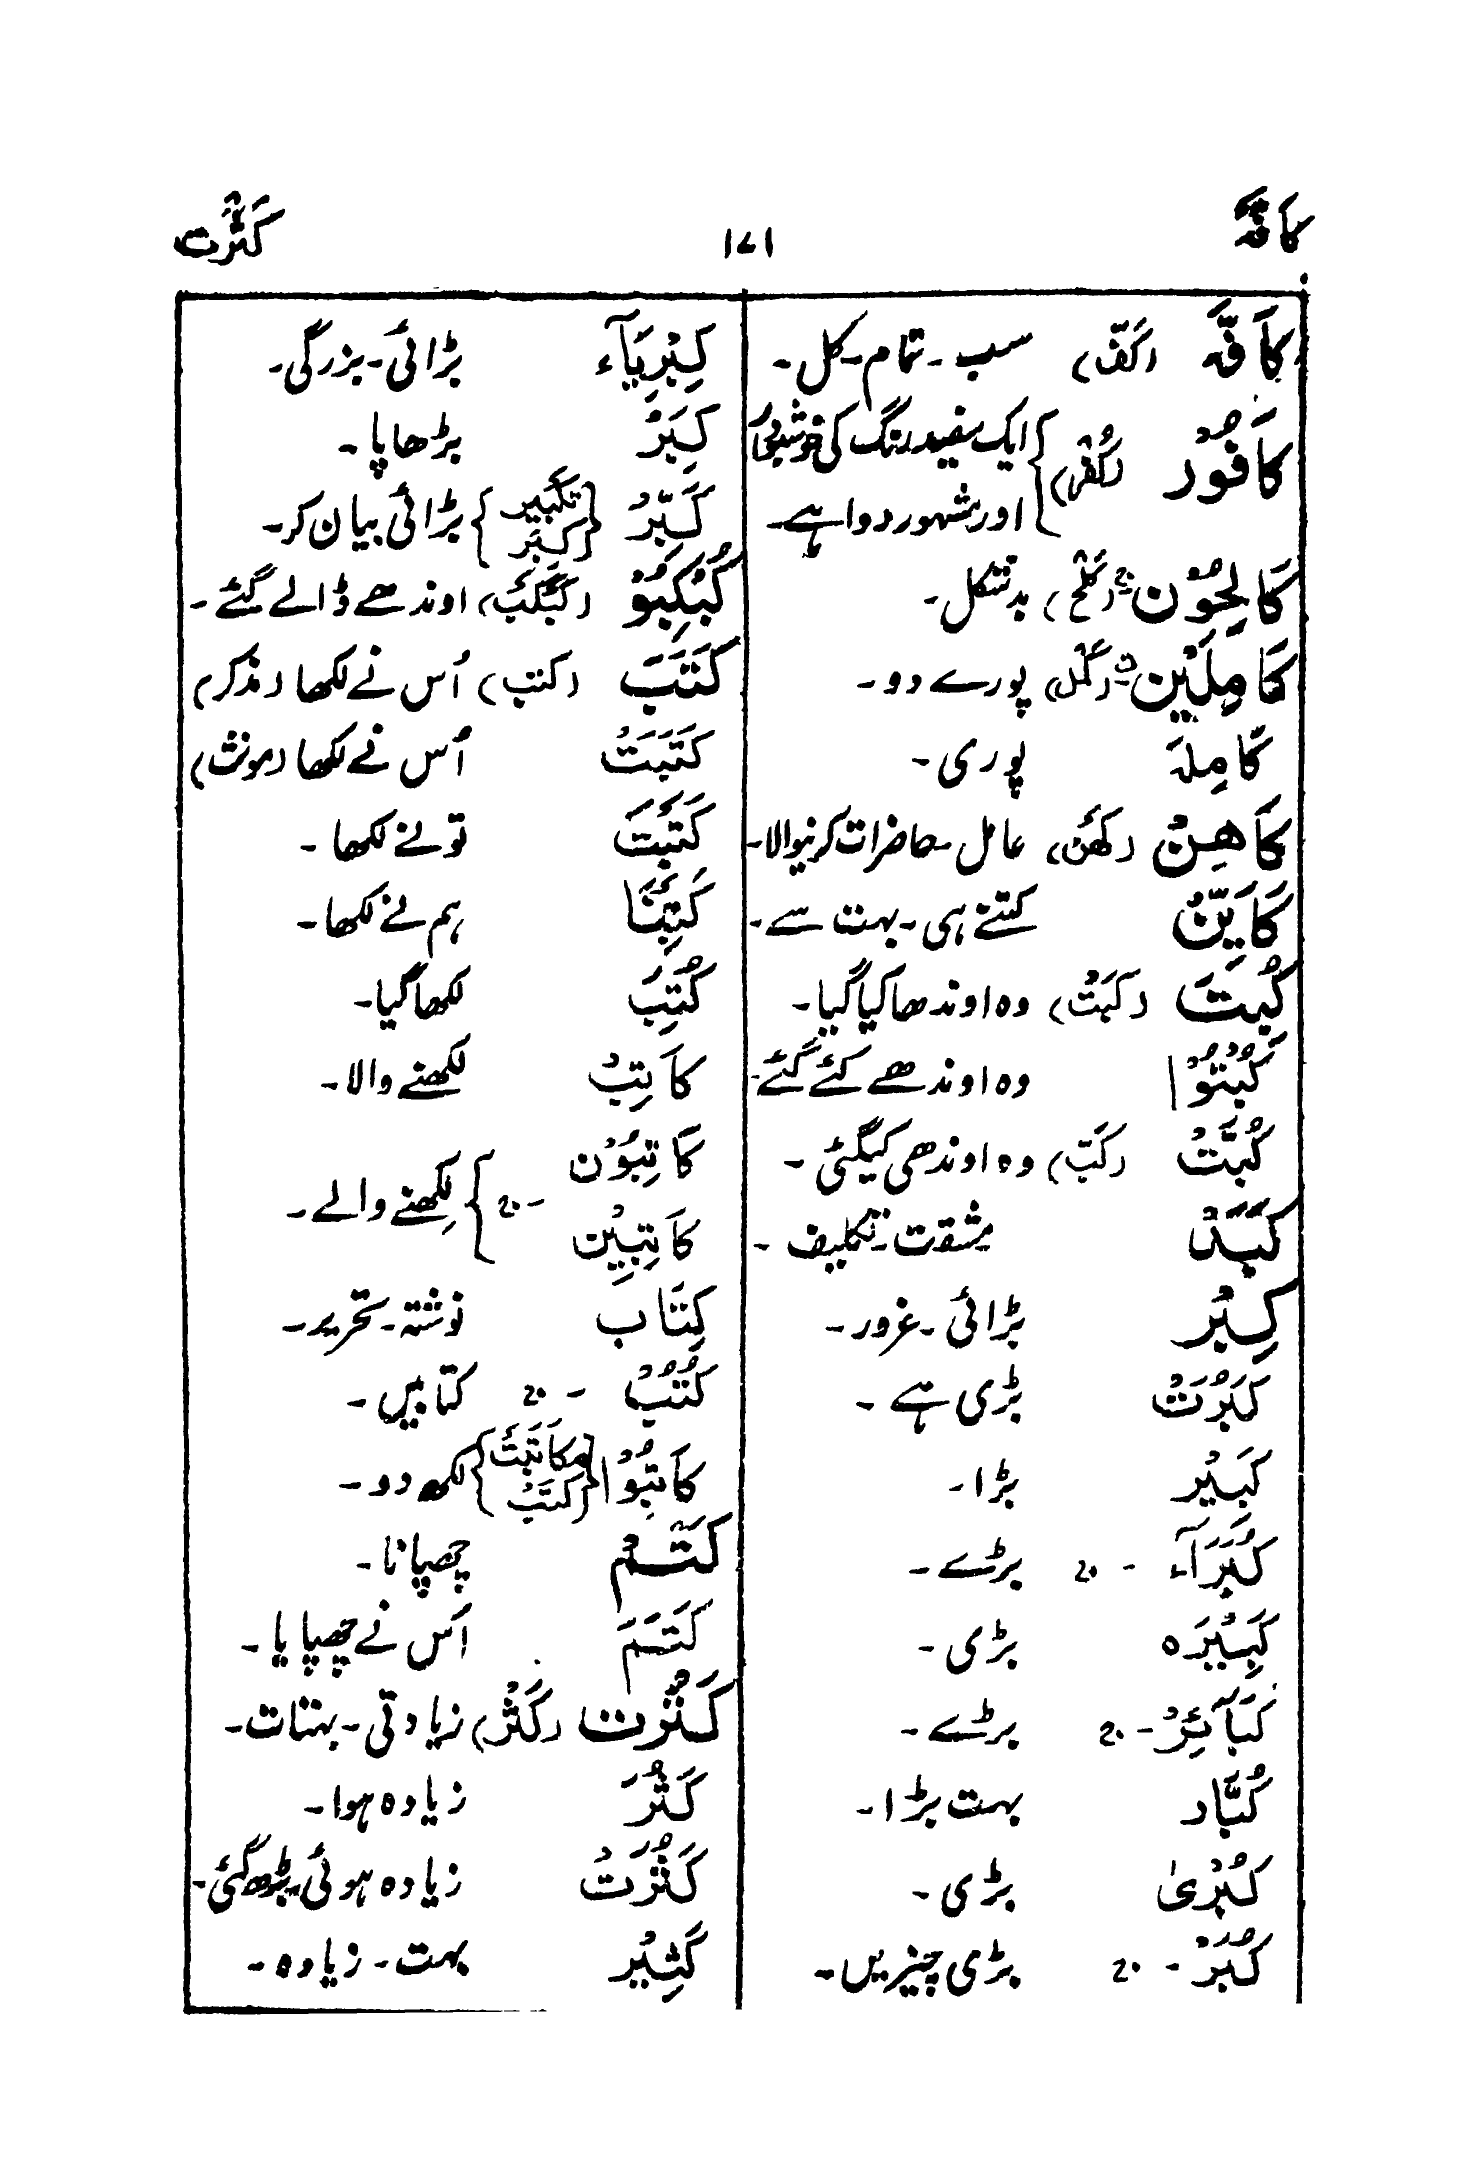 کَافَّۃ ۱۷۱ کَثْرَت
کَافَّۃ (کَفّ) سب۔ تمام۔ کل۔
کَافُوْر (کُفْر) ایک سفید رنگ کی خوشبودار
اور مشہور دوا ہے۔
کَالِحُوْن ج (کَلْح) بدشکل۔
کَامِلَیْن ث (کَمْل) پورے دو۔
کَامِلَۃ پوری۔
کَاهِنٌ (کَهْن) عامل۔ حاضرات کرنیوالا۔
کَاَیِّنْ کتنے ہی۔ بہت سے۔
کُبِتَ (کَبْتٌ) وہ اوندھا کیا گیا۔
کُبِتُوْا وہ اوندھے کئے گئے۔
کُبَّتْ (کَبّ) وہ اوندھی کیگئی۔
کَبَدٌ مشقت۔ تکلیف۔
کِبْر بڑائی۔ غرور۔
کَبُرَتْ بڑی ہے۔
کَبِیْر بڑا۔
کُبَرَآء - ج بڑے۔
کَبِیْرَہ بڑی۔
کَبَآئِرُ - ج بڑے۔
کُبَّار بہت بڑا۔
کُبْریٰ بڑی۔
کُبَرْ - ج بڑی چیزیں۔
کِبْرِیَآء بڑائی۔ بزرگی۔
کِبَرْ بڑھاپا۔
کَبِّرْ {تکبیر کِبَر} بڑائی بیان کر۔
کُبْکِبُوْ (کَبْکَبَ) اوندھے ڈالے گئے۔
کَتَبَ (کتب) اُس نے لکھا (مذکر)
کَتَبَتْ اُس نے لکھا (مونث)
کَتَبْتَ تونے لکھا۔
کَتَبْنَا ہم نے لکھا۔
کُتِبَ لکھا گیا۔
کَاتِبْ لکھنے والا۔
کَاتِبُوْن
- ج } لِکھنے والے۔
کَاتِبِیْن
کِتَاب نوشتہ۔ تحریر۔
کُتُبْ - ج کتابیں۔
کَاتِبُوْا {مکَاتَبَتْ کَتَبْ} لکھ دو۔
کَتْمْ چھپانا۔
کَتَمَ اُس نے چھپایا۔
کَثْرَت (کَثْر) زیادتی۔ بہتات۔
کَثُرَ زیادہ ہوا۔
کَثُرَتْ زیادہ ہوئی۔ بڑھ گئی۔
کَثِیْر بہت۔ زیادہ۔